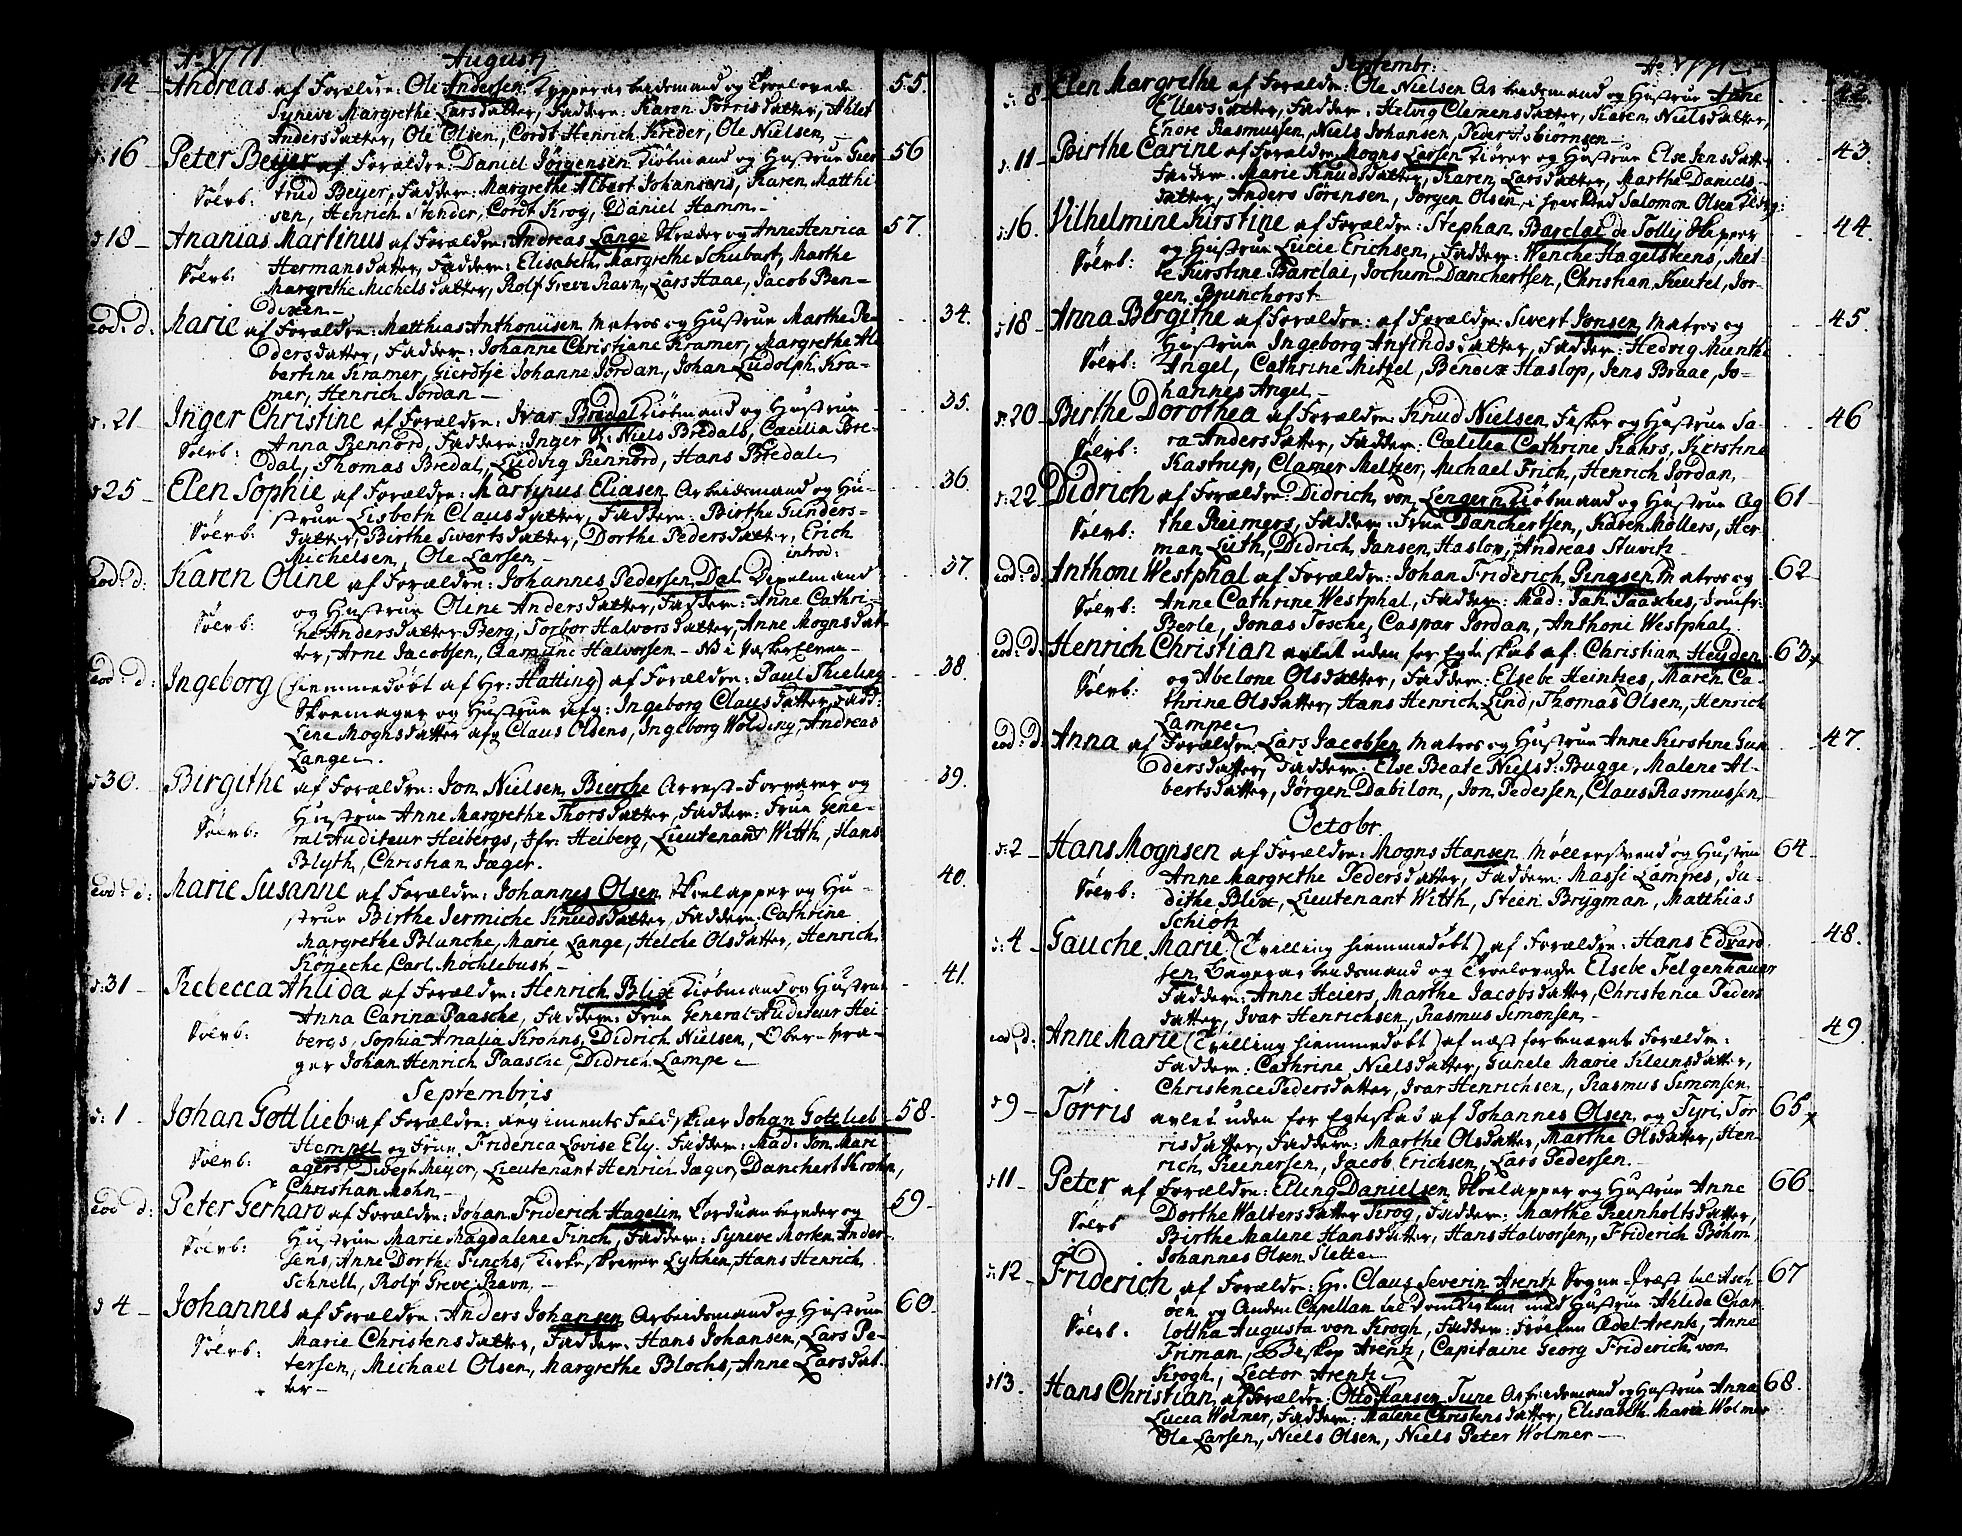 Ao 1771 August
14 Andreas af Forældre: Ole Andersen Kypperarbeidsmand og Trolovede 55.
Syneve Margrethe Larsdatter, Faddere: Karen Torrisdatter, Ahlet
Andersdatter, Ole Olsen, Cordt Henrich Kreder, Ole Nielsen, —
d: 16 — Peter Beyer af Forældre: Daniel Jørgensen Kiøbmand og Hustrue Gier- 56
Sølvb: trud Beyer, Faddere: Margrethe Albert Johansens, Karen Matthi-
sen, Henrich Stender, Cordt Krog, Daniel Hamm. —
d: 18 — Ananias Martinus af Forældre: Andreas Lange Stræder og Anne Henrica 57.
Sølvb: Hermansdatter, Faddere: Elisabeth Margrethe Schubart, Marthe
Margrethe Michelsdatter, Rolf Greve Ravn, Lars Haae, Jacob Ben-
dixen —
eod: d: Marie af Forældre: Matthias Anthoniisen Matros og Hustrue Marthe Pe- 34.
dersdatter, Faddere: Johanne Christiane Kramer, Margrethe Al-
bertine Kramer, Gierdtje Johanne Jordan, Johan Ludolph Kra-
mer, Henrich Jordan —
d: 21 Inger Christine af Forældre: Ivar Bredal Kiøbmand og Hustrue 35.
Sølvb: Anna Rennord, Faddere: Inger Niels Bredals, Cæcilia Bre-
dal, Thomas Bredal, Ludvig Rennord, Hans Bredal
d: 25 — Elen Sophie af Forældre: Martinus Eliasen Arbeidsmand og Hu- 36
Sølvb: strue Lisbeth Clausdatter, Faddere: Birthe Gunders-
datter, Birthe Sivertsdatter, Dorthe Pedersdatter, Erich
Michelsen, Ole Larsen — introd:
eod: d: Karen Oline af Forældre: Johannes Pedersen Dal 37.
Sølvb: og Hustrue Oline Andersdatter, Faddere: Anne Cathri-
ne Andersdatter Berg, Torbor Halvorsdatter, Anne Mognsdat-
ter, Arne Jacobsen, Aamund Halvorsen —
eod: d: Ingeborg (hiemmedøbt af Hr: Hatting) af Forældre: Paul Thieling 38.
Skoemager og Hustrue afg: Ingeborg Clausdatter, Fadd:
Lene Mognsdatter afg Claus Olsens, Ingeborg Wolding, Andreas
Lange.
d: 30. Birgithe af Forældre: Jon Nielsen Bierche Arrest-Forvarer og 39.
Sølvb: Hustrue Anne Margrethe Thorsdatter, Faddere: Frue Gene-
ral Auditeur Heibergs, Jfr: Heiberg, Lieutenant Witth, Hans
Blyth, Christian Jæger.
eod: d: Marie Susanne af Forældre: Johannes Olsen Skoelapper og Hu- 40.
strue Birthe Jermiche Knudsdatter, Faddere: Cathrine
Margrethe Blanche, Marie Lange, Helche Olsdatter, Henrich
Köneche, Carl Möchlebust —
d: 31 — Rebecca Ahlida af Forældre: Henrich Blix Kiøbmand og Hustrue 41.
Sølvb: Anna Carina Paasche, Faddere: Frue General-Auditeur Hei-
bergs, Sophia Amalia Krohns, Didrich Nielsen, Ober-Vra-
ger Johan Henrich Paasche, Didrich Lampe —
Septembris
d: 1 Johan Gottlieb af Forældre: Regiments Feldskiær Johan Gottlieb 58
Sølvb: Hempel og Frue Friderica Lovise Ely. Faddere: Mad: Jon Mari-
agers, Meyer, Lieutenant Henrici Jæger, Danchert Krohn,
Christian Mohn. —
eod: d: Peter Gerhard af Forældre: Johan Friderich Hagelin Corduanbereder og 59
Sølvb: Hustrue Marie Magdalene Finch, Faddere: Syneve Morten Ander-
sens, Anne Dorthe Finchs, Kirkeskriver Lykken, Hans Henrich
Schnell, Rolf Greve Ravn. —
d 4 — Johannes af Forældre: Anders Johansen Arbeidsmand og Hustrue 60
Sølvb: Marie Christensdatter, Faddere: Hans Johansen, Lars Pe-
tersen, Michael Olsen, Margrethe Blochs, Anne Larsdat-
ter —
Septembr: Ao 1771
d: 8 Elen Margrethe af Forældre: Ole Nielsen Arbeidsmand og Hustrue Anne 42
Ellersdatter, Faddere: Helvig Clemensdatter, Karen Nielsdatter,
Enore Rasmussen, Niels Johansen, Peder Asbiørnsen —
d: 11 — Birthe Carine af Forældre: Mogns Larsen Kiører og Hustrue Else Jensdatter 43.
Faddere: Marie Knudsdatter, Karen Larsdatter, Marthe Daniels-
datter, Anders Sørensen, Jørgen Olsen, i hvis sted Salomon Olsen
d: 16. Vilhelmine Kirstine af Forældre: Stephan Barclai de Tolly Skipper 44.
Sølvb: og Hustrue Lucie Erichsen, Faddere: Wenche Hagelsteens, Met-
te Kirstine Barclai, Jochum Danchertsen, Christian Keutel, Jør-
gen Brunchorst
d: 18 — Anna Bergithe af Forældre: af Forældre: Sivert Jonsen Matros og 45.
Sølvb: Hustrue Ingeborg Anfindsdatter, Faddere: Hedvig Munthe
Angel, Cathrine Mitzel, Benoix Haslop, Jens Braae, Jo-
hannes Angel —
d: 20 — Birthe Dorothea af Forældre: Knud Nielsen Fisker og Hustrue Sa- 46
Sølvb: ra Andersdatter, Faddere: Cæcilia Cathrine Rahrs, Kirstine
Kastrup, Clamer Meltzer, Michael Frich, Henrich Jordan
d: 22 Didrich af Forældre: Didrich von Lengern Kiøbmand og Hustrue Ag- 61
Sølvb: the Reimers, Faddere: Frue Danchertsen, Karen Möllers, Her-
man Luth, Didrich Jansen Haslop, Andreas Stuvitz
eod: d: Anthoni Westphal af Forældre: Johan Friderich Pingsen Matros og 62
Sølvb: Anne Cathrine Westphal, Faddere: Mad: Jah Paasches, Jomfr:
Berle, Jonas Tosche, Caspar Jordan, Anthoni Westphal.
eod: d: Henrich Christian avlet uden for Egteskab af: Christian Heyden 63
Sølvb: og Abelone Olsdatter, Faddere: Elsebe Heintzes, Maren Ca-
thrine Olsdatter, Hans Henrich Lind, Thomas Olsen, Henrich
Lampe
eod: d: Anna af Forældre: Lars Jacobsen Matros og Hustrue Anne Kirstine Gun- 47.
dersdatter, Faddere: Else Beate Nielsd: Bugge, Malene Al-
bertsdatter, Jørgen Dabilon, Jon Pedersen, Claus Rasmussen —
Octobr.
d: 2 — Hans Mognsen af Forældre: Mogns Hansen Møllersvend og Hustrue 64
Sølvb: Anne Margrethe Pedersdatter, Faddere: Massi Lampes, Ju-
dithe Blix, Lieutenant Witth, Steen Brygman, Matthias
Schiøtz
d: 4 — Gauche Marie (Tvilling hiemmedøbt) af Forældre: Hans Edvard- 48.
sen Bagerarbeidsmand og Trolovede Elsebe Felgenhauer
Faddere: Anne Heiers, Marthe Jacobsdatter, Christence Peders-
datter, Ivar Henrichsen, Rasmus Simonsen. —
eod: d: Anne Marie (Tvilling hiemmedøbt) af næst forbenævnte Forældre: 49
Faddere: Cathrine Nielsdatter, Gunele Marie Kleinsdatter,
Christence Pedersdatter, Ivar Henrichsen, Rasmus Simonsen
d 9 — Torris avlet uden for Egteskab af Johannes Olsen og Tyri Tor- 65
risdatter, Faddere: Marthe Olsdatter, Marthe Olsdatter, Hen-
rich Reinersen, Jacob Erichsen, Lars Pedersen. —
d 11 — Peter af Forældre: Eling Danielsen Skoelapper og Hustrue Anne 66
Sølvb Dorthe Waltersdatter Krog, Faddere: Marthe Reinholtsdatter,
Birthe Malene Hansdatter, Hans Halvorsen, Friderich Böhm,
Johannes Olsen Slette
d: 12 — Friderich af Forældre: Hr: Claus Severin Arentz Sogne-Præst til Asch- 67
Sølvb. öen og Anden Capellan til Domkirken med Hustrue Ahlida Char-
lottha Augusta von Krogh, Faddere: Frøken Ædel Arentz, Anne
Friman, Biskop Arentz, Capitaine Georg Friderich von
Krogh, Lector Arentz
d 13. Hans Christian af Forældre: Otto Hansen Tune Arbeidsmand og Hustrue Anna 68.
Lucia Wolmer, Faddere: Malene Christensdatter, Elisabeth Marie Wolmer
Ole Larsen, Niels Olsen, Niels Peter Wolmer —